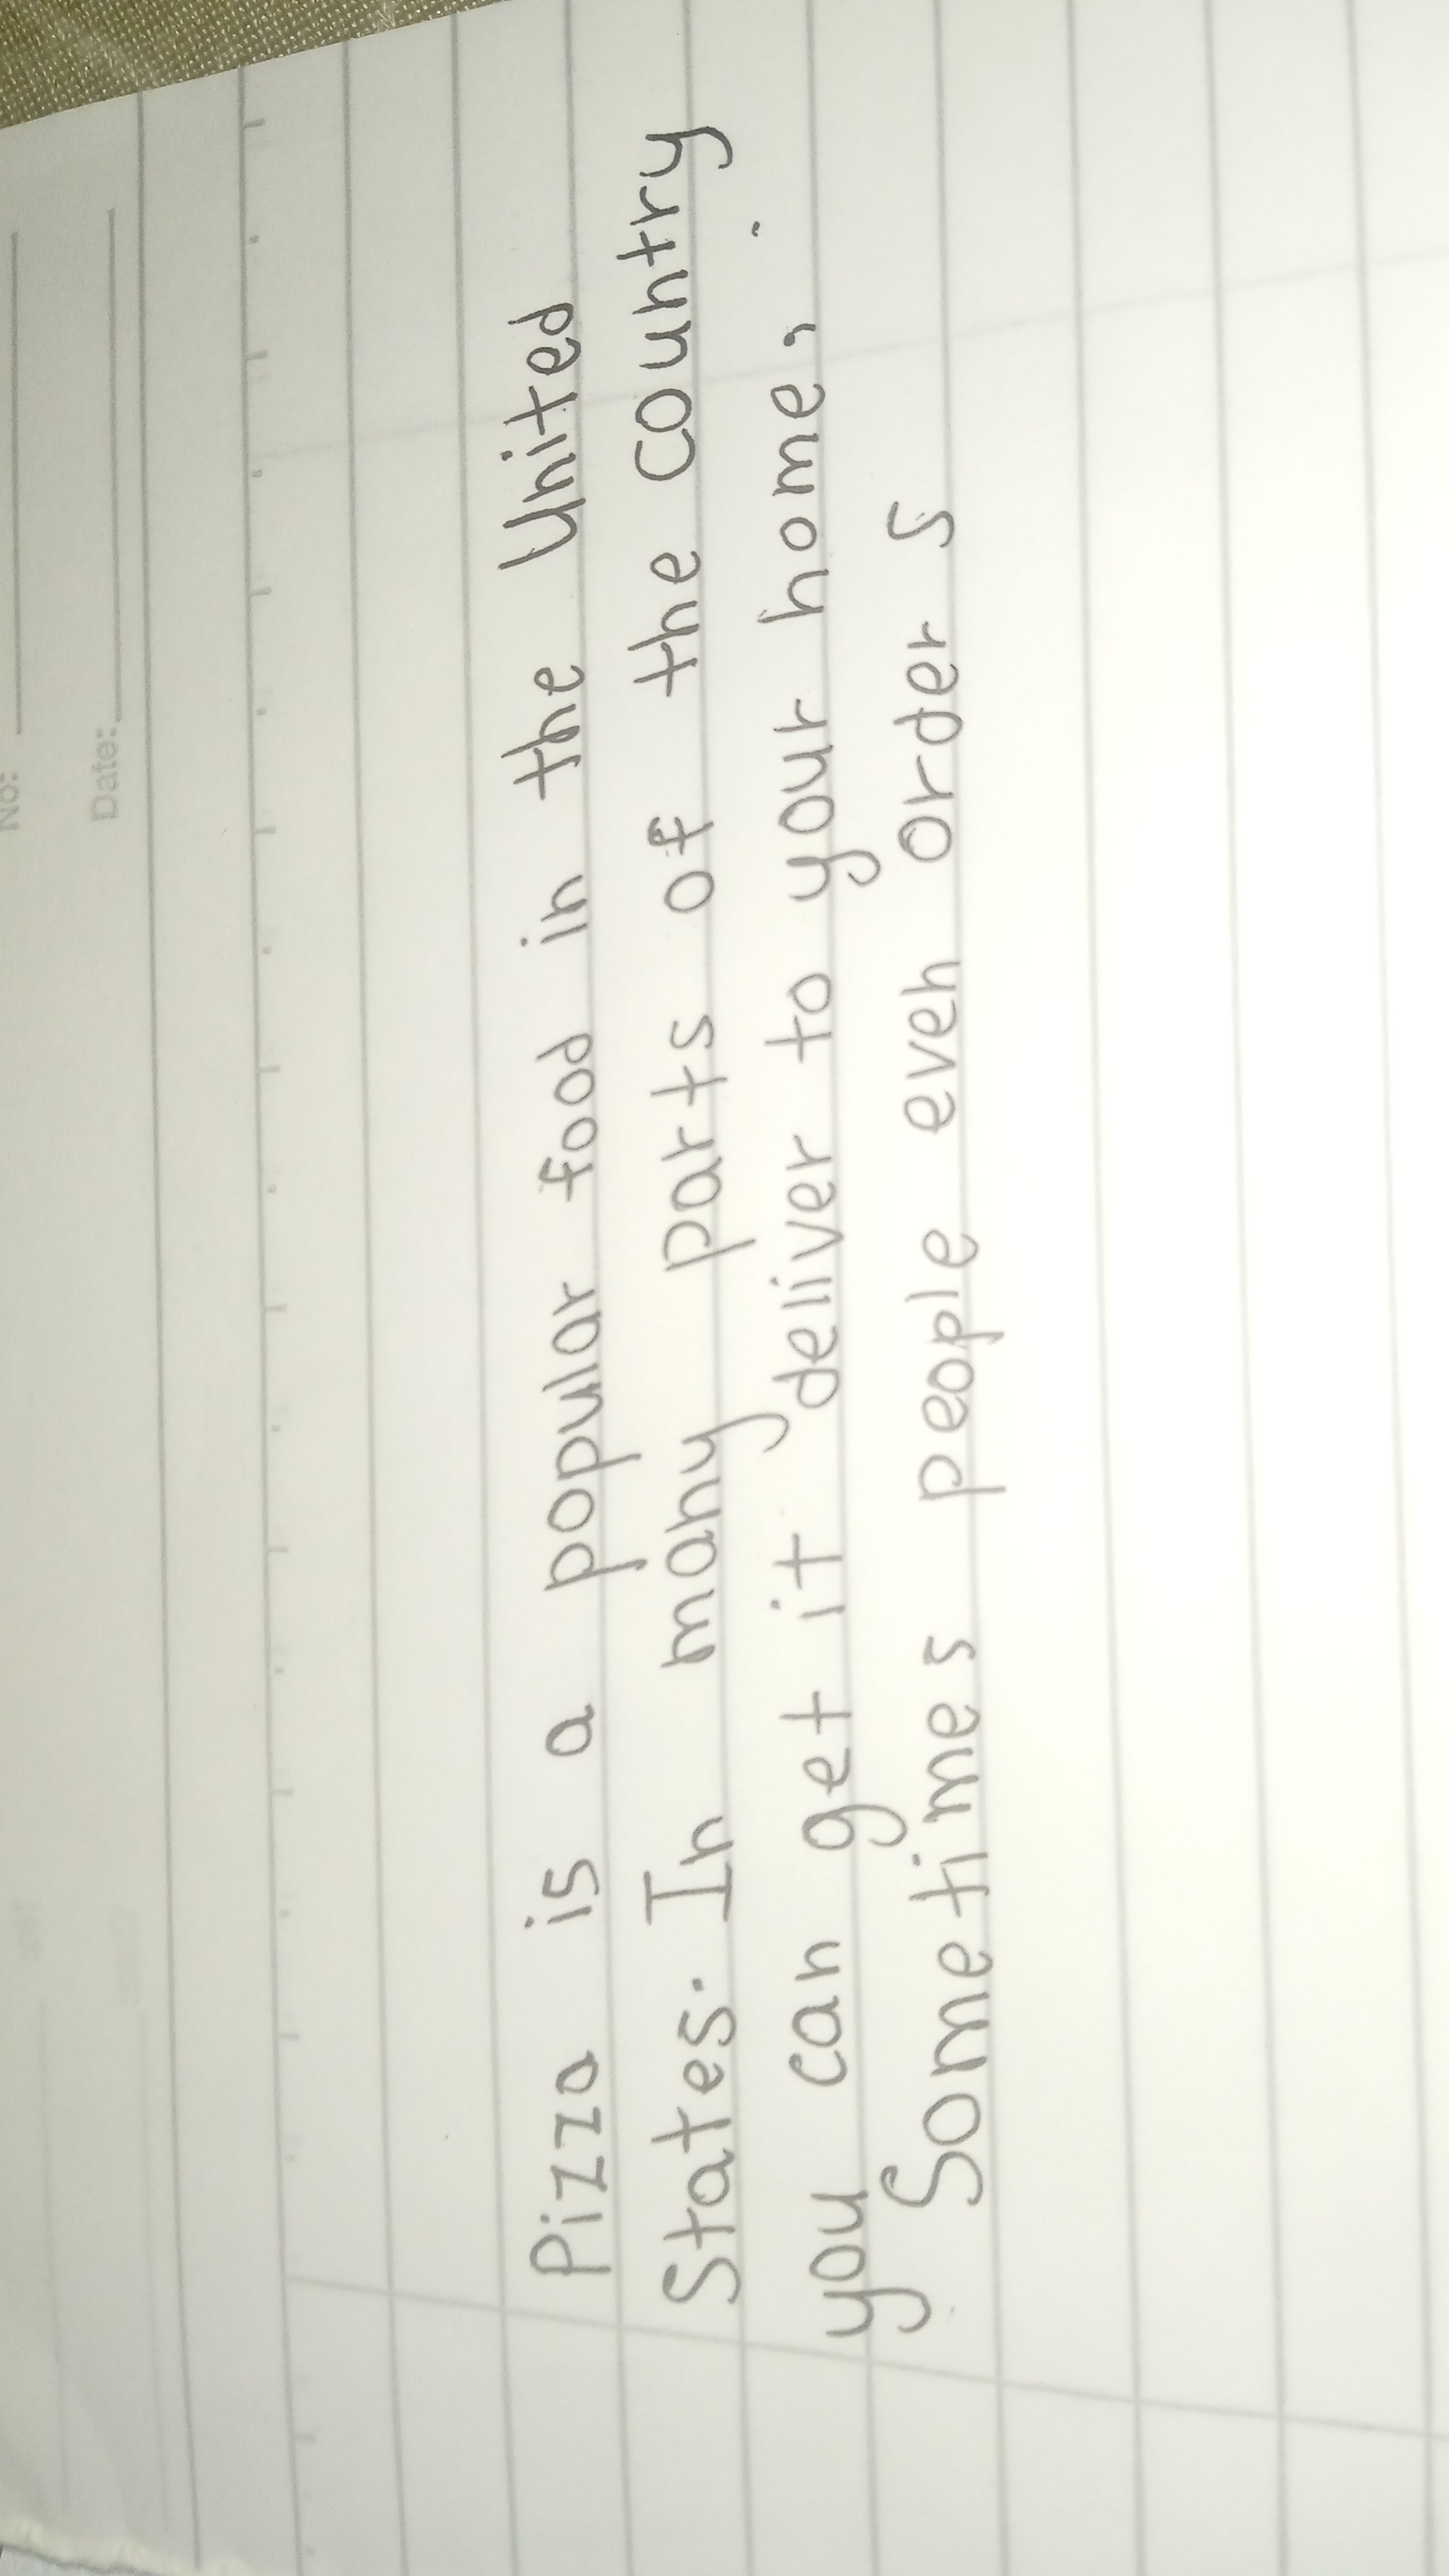 No:
Date:
Pizza is a popular food in the United
States. In many parts of the country
you can get it deliver to your home,
Sometimes people even order s